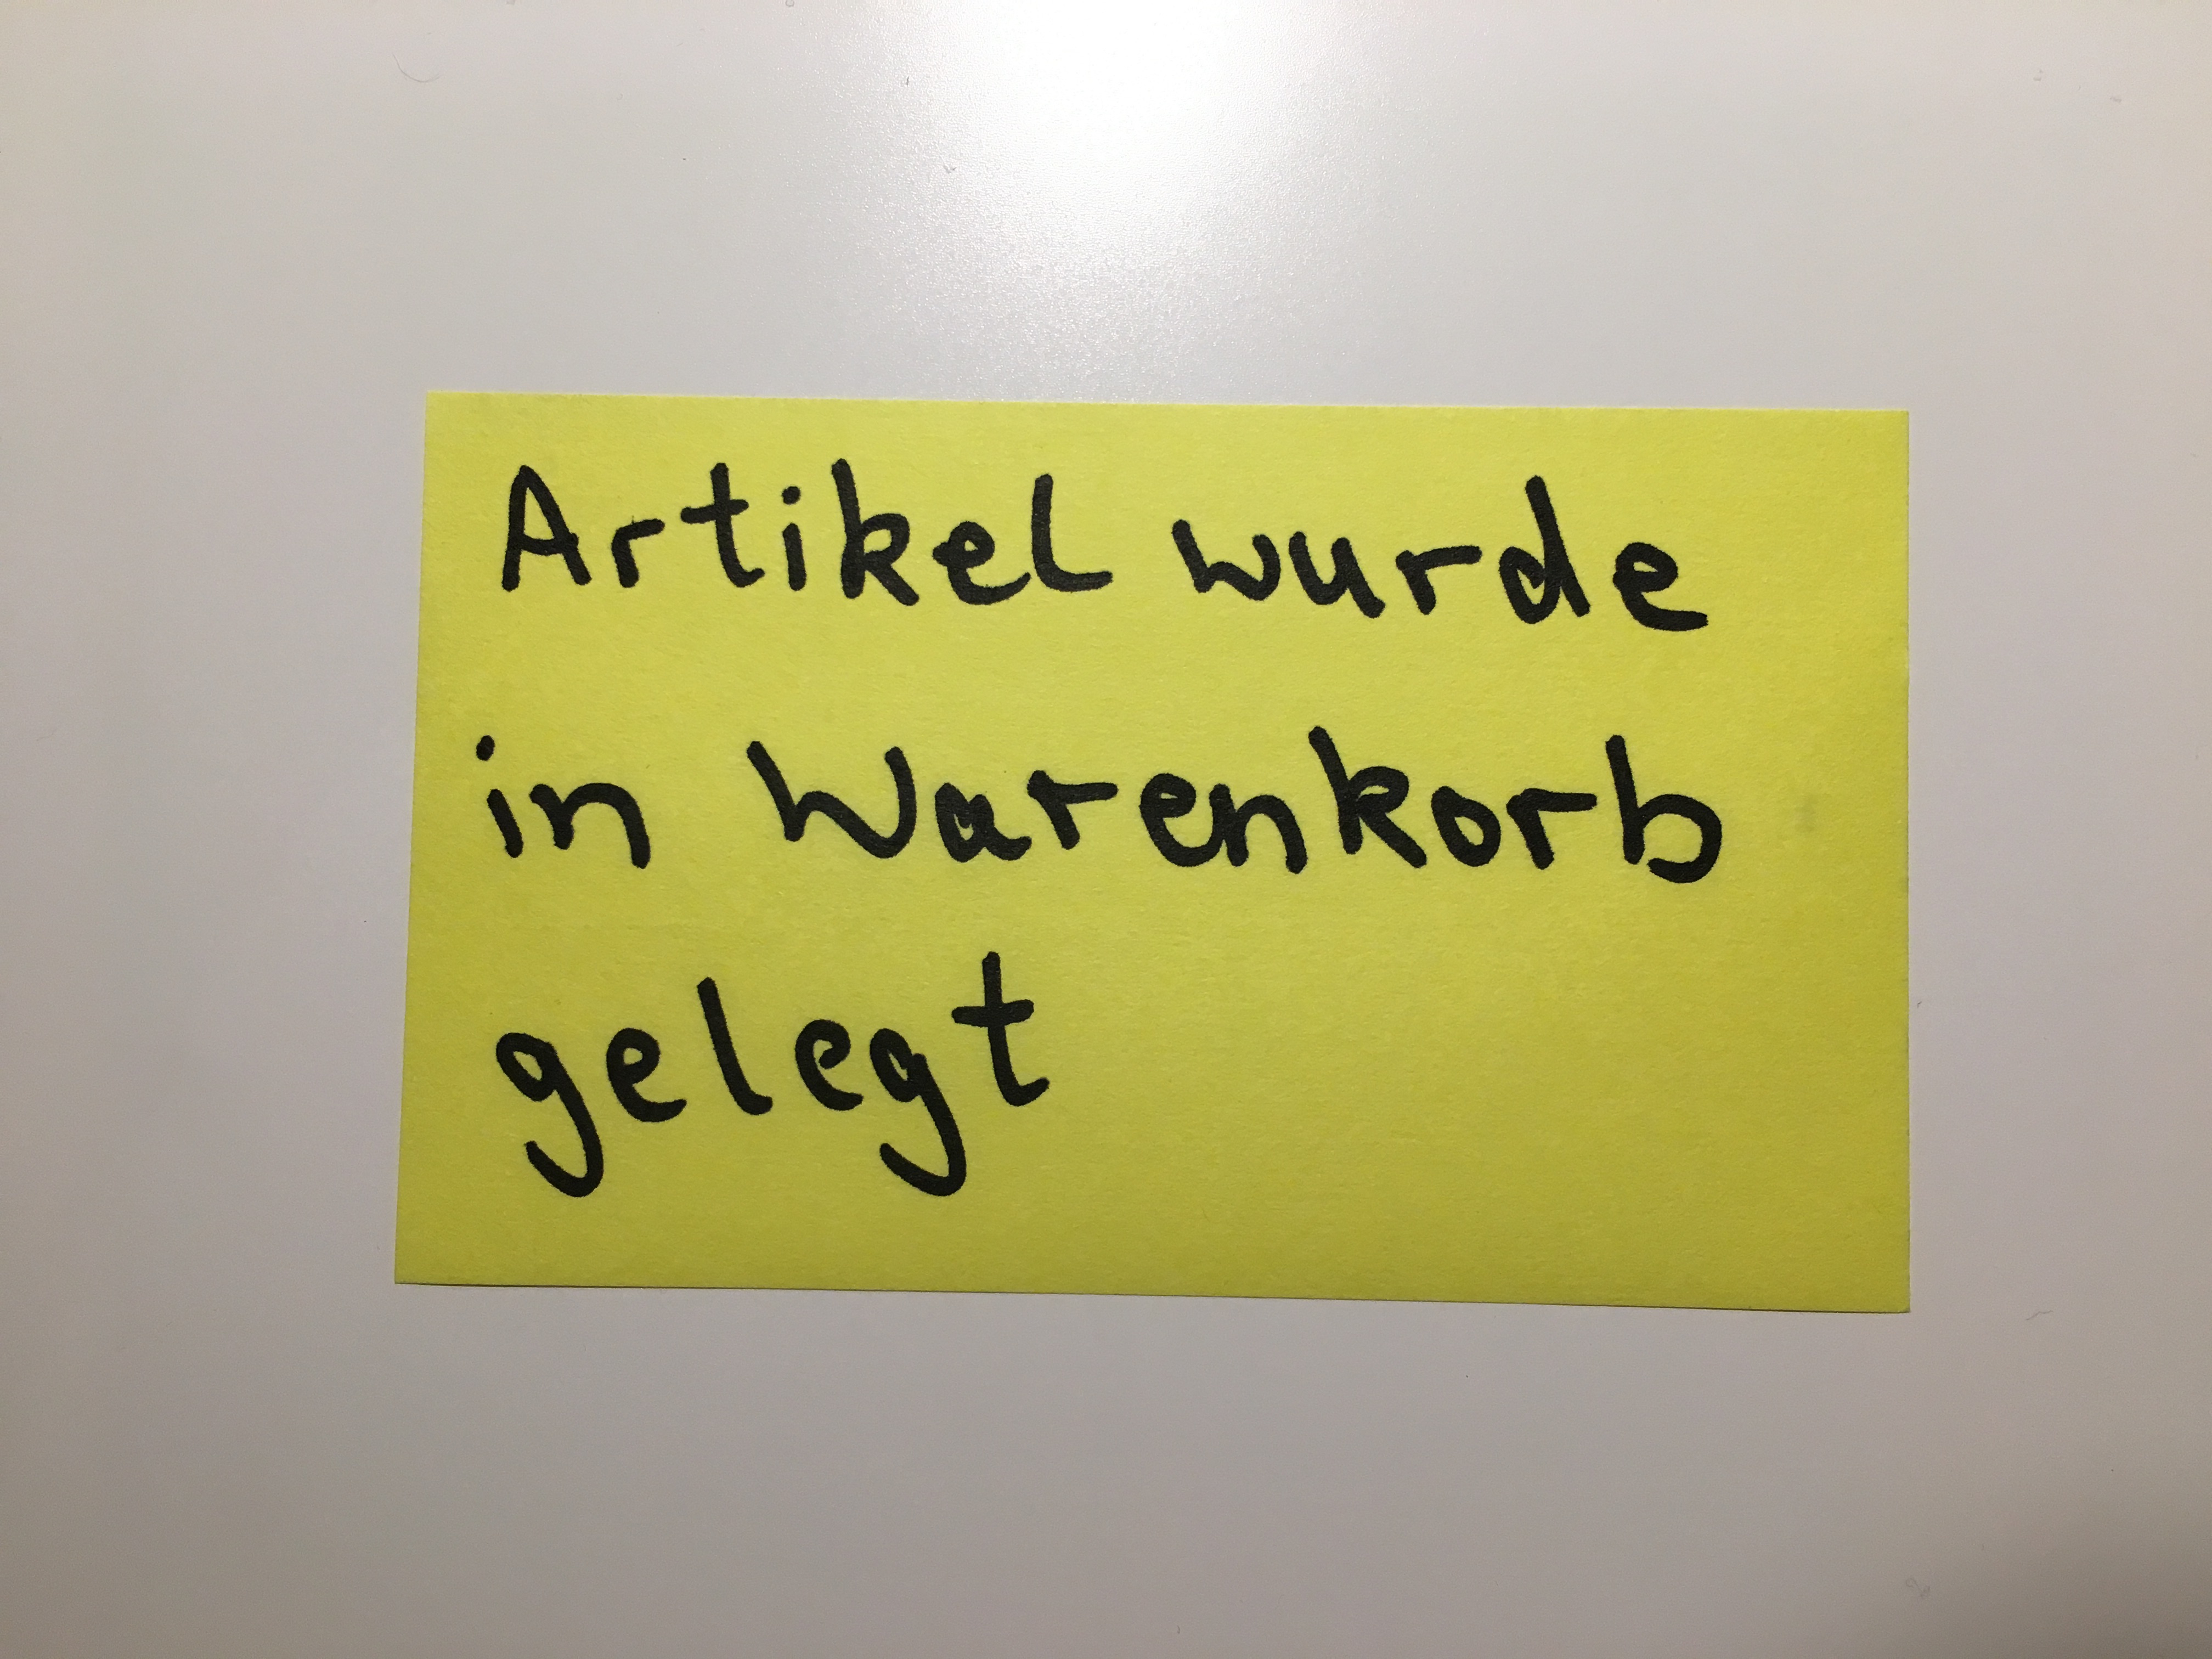 Artikel wurde
in Warenkorb
gelegt